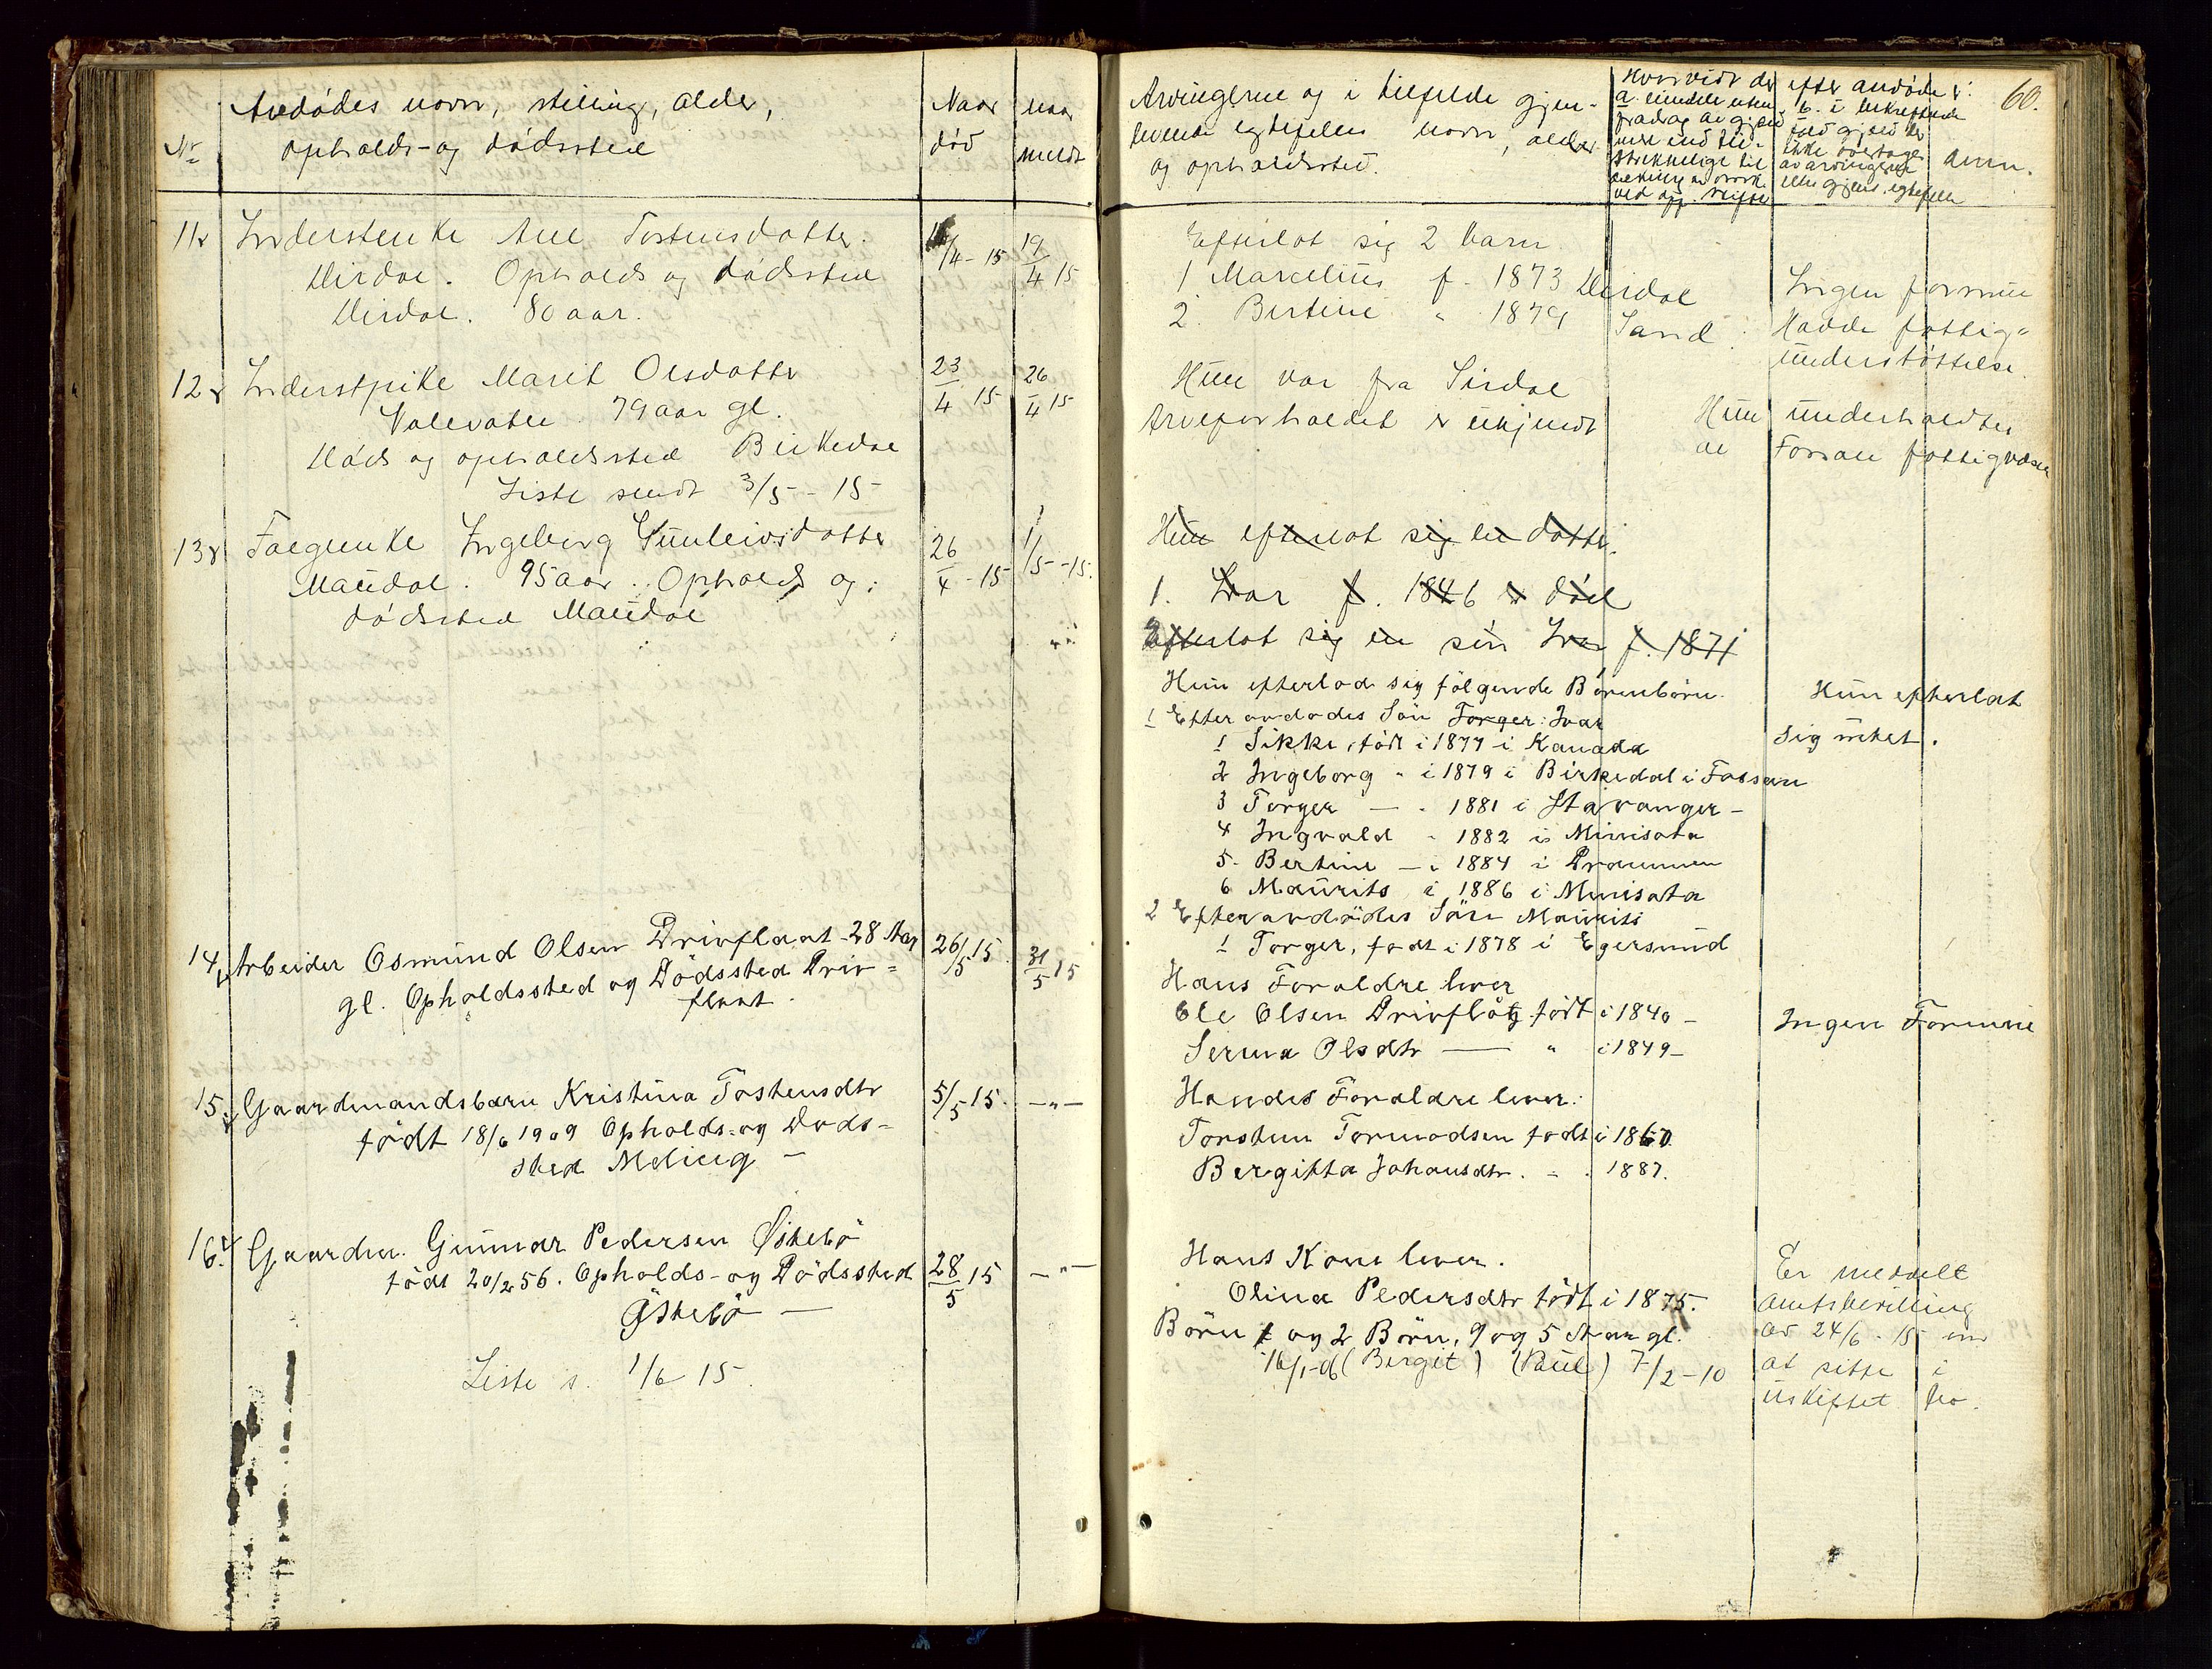 Nr
Avdødes navn, stilling, alder,
opholds- og dødssted
Naar
død
naar
meldt
11
Inderstenke Ane Tostensdatter
Dirdal. Opholds og dødssted
Dirdal. 80 aar.
/4 - 15
19/4 15
12
Inderstpike Marit Olsdatter
Valevatn 79 aar gl.
Døds og opholdssted Birkedal
Liste sendt 3/5 - 15
23/4 15
26/4 15
13
Folgenke Ingeborg Gunleivsdatter
Maudal. 95 aar. Opholds og
dødssted Maudal
26/4 - 15
1/5 - 15.
14
Arbeider Osmund Olsen Drivflaat 28 Aar
gl. Opholdssted og Dödssted Driv=
flaat.
26/5 15.
31/5 15
15.
Gaardmandsbarn Kristina Tostensdtr
födt 18/6 1909 Opholds- og Døds=
sted Meling -
5/5 15.
-"-
16.
Gaardm. Gunnar Pedersen Östebö
födt 20/2 56. Opholds- og Dödssted
Östebö -
28/5 15
-"-
Liste s. 1/6 15
60.
Arvingerne og i tilfelde gjen-
levende egtefelles navn, alder
og opholdssted.
Hvorvidt der efter avdøde er:
anm.
Efterlot sig 2 barn
1 Marcelius f. 1873 Dirdal
2. Bertine " 1879 Sand
Ingen formue
Hadde fattig=
understøttelse.
Hun var fra Sirdal
Arveforholdet er ukjendt
Hun underholdtes
av Forsan fattigvæsen
Hun efterlot sig en datter.
1. Ivar f. 1846 er død
Efterlot sig en søn Iver f. 1871
Hun efterlod sig fölgende Börnebörn.
1 Efter avdødes Sön Torger: Ivar
1 Sikke, födt i 1877 i Kanada
2 Ingeborg " i 1879 i Birkedal i Fossan
3 Torger - " 1881 i Stavanger -
4 Ingvald " 1882 i Minisota
5. Bertine - i 1884 i Drammen
6 Maurits i 1886 i Minisota
2 Efter avdödes Sön Maurits
1 Torger, födt i 1878 i Egersund
Hun efterlot
sig intet.
Hans Foraldre lever
Ole Olsen Drivflåt födt i 1840 -
Serina Olsdtr - " i 1849 -
Ingen Formue
Hendes Foraldre lever:
Torsten Tormodsen födt i 1860.
Bergitta Johansdtr. " . 1887.
Hans Kone lever.
Olina Pedersdtr födt i 1875.
Börn og 2 Börn, 9 og 5 Aar gl.
16/1-06 (Bergit) (Paul) 7/2 - 10
Er meddelt
amtsbevilling
av 24/6 - 15 om
at sitte i
uskiftet bo.